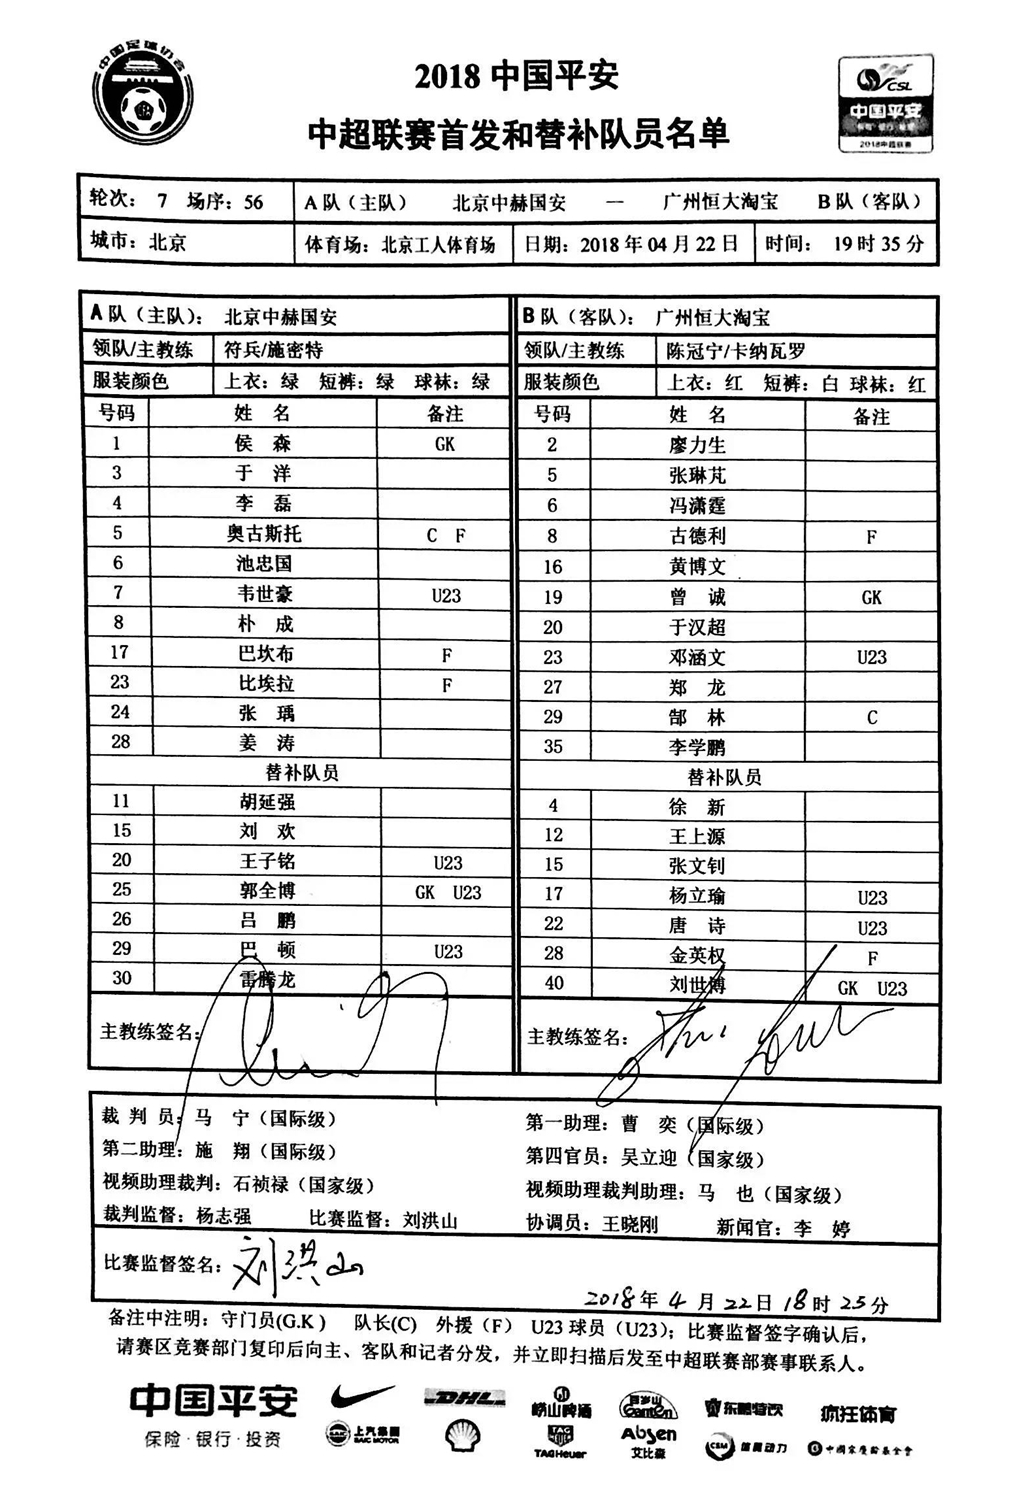 中国足球协会
2018 中国平安
中超联赛首发和替补队员名单
CSL
中国平安
保险·银行·投资
2018中超联赛
轮次： 7 场序：56 A 队（主队） 北京中赫国安 — 广州恒大淘宝 B 队（客队）
城市：北京 体育场：北京工人体育场 日期：2018 年 04 月 22 日 时间： 19 时 35 分
A 队（主队）： 北京中赫国安 B 队（客队）： 广州恒大淘宝
领队/主教练 符兵/施密特 领队/主教练 陈冠宁/卡纳瓦罗
服装颜色 上衣：绿 短裤：绿 球袜：绿 服装颜色 上衣：红 短裤：白 球袜：红
号码 姓 名 备注 号码 姓 名 备注
1 侯 森 GK 2 廖力生
3 于 洋 5 张琳芃
4 李 磊 6 冯潇霆
5 奥古斯托 C F 8 古德利 F
6 池忠国 16 黄博文
7 韦世豪 U23 19 曾 诚 GK
8 朴 成 20 于汉超
17 巴坎布 F 23 邓涵文 U23
23 比埃拉 F 27 郑 龙
24 张 瑀 29 郜 林 C
28 姜 涛 35 李学鹏
替补队员 替补队员
11 胡延强 4 徐 新
15 刘 欢 12 王上源
20 王子铭 U23 15 张文钊
25 郭全博 GK U23 17 杨立瑜 U23
26 吕 鹏 22 唐 诗 U23
29 巴 顿 U23 28 金英权 F
30 雷腾龙 40 刘世博 GK U23
主教练签名： 主教练签名：
裁 判 员：马 宁（国际级） 第一助理：曹 奕（国际级）
第二助理：施 翔（国际级） 第四官员：吴立迎（国家级）
视频助理裁判：石祯禄（国家级） 视频助理裁判助理：马 也（国家级）
裁判监督：杨志强 比赛监督：刘洪山 协调员：王晓刚 新闻官：李 婷
比赛监督签名：刘洪山
2018 年 4 月 22 日 18 时 25 分
备注中注明：守门员(G.K ) 队长(C) 外援（F） U23 球员（U23）；比赛监督签字确认后，
请赛区竞赛部门复印后向主、客队和记者分发，并立即扫描后发至中超联赛部赛事联系人。
中国平安 DHL 崂山啤酒 百岁山 Ganten 东鹏特饮 疯狂体育
保险·银行·投资 SAIC 上汽集团 SAIC MOTOR TAG Heuer Absen 艾比森 CSM
TAGHeuer